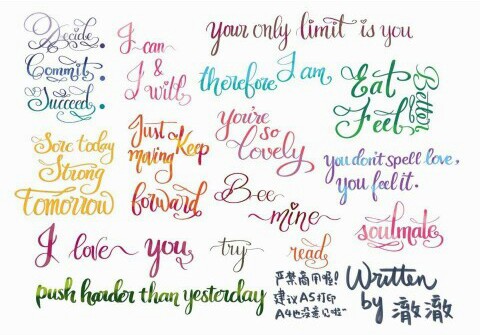 Decide.
Commit.
Succeed.
I can
&
I will
your only limit is you
therefore I am
Eat
Feel
Better
Sore today
Strong
Tomorrow
Just
Keep
moving
forward
You're
so
lovely
you don't spell love,
you feel it.
Bee
~mine~
soulmate
I love you
try
read
push harder than yesterday
严禁商用喔!
建议A5打印
A4也没意见啦~
Written
by 澈澈